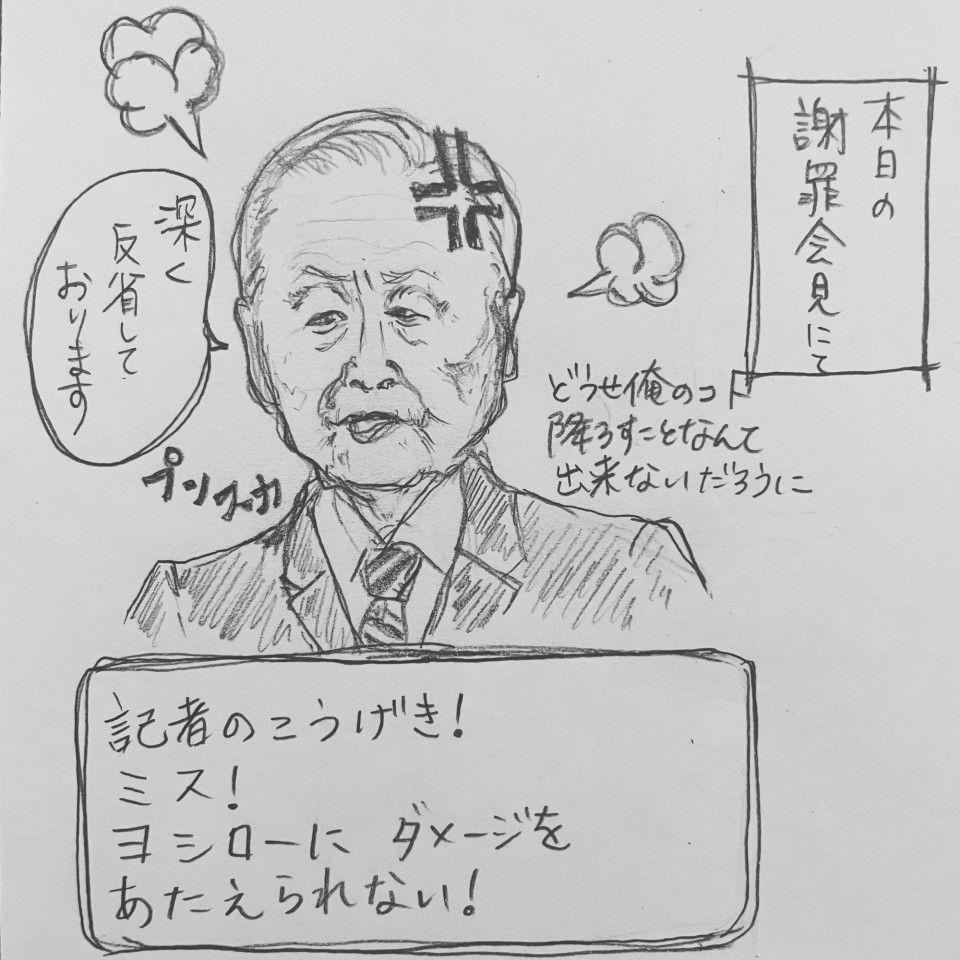 本日の
謝罪会見にて
深く
反省して
おります
プンスカ
どうせ俺のコト
降ろすことなんて
出来ないだろうに
記者のこうげき!
ミス!
ヨシローに ダメージを
あたえられない!